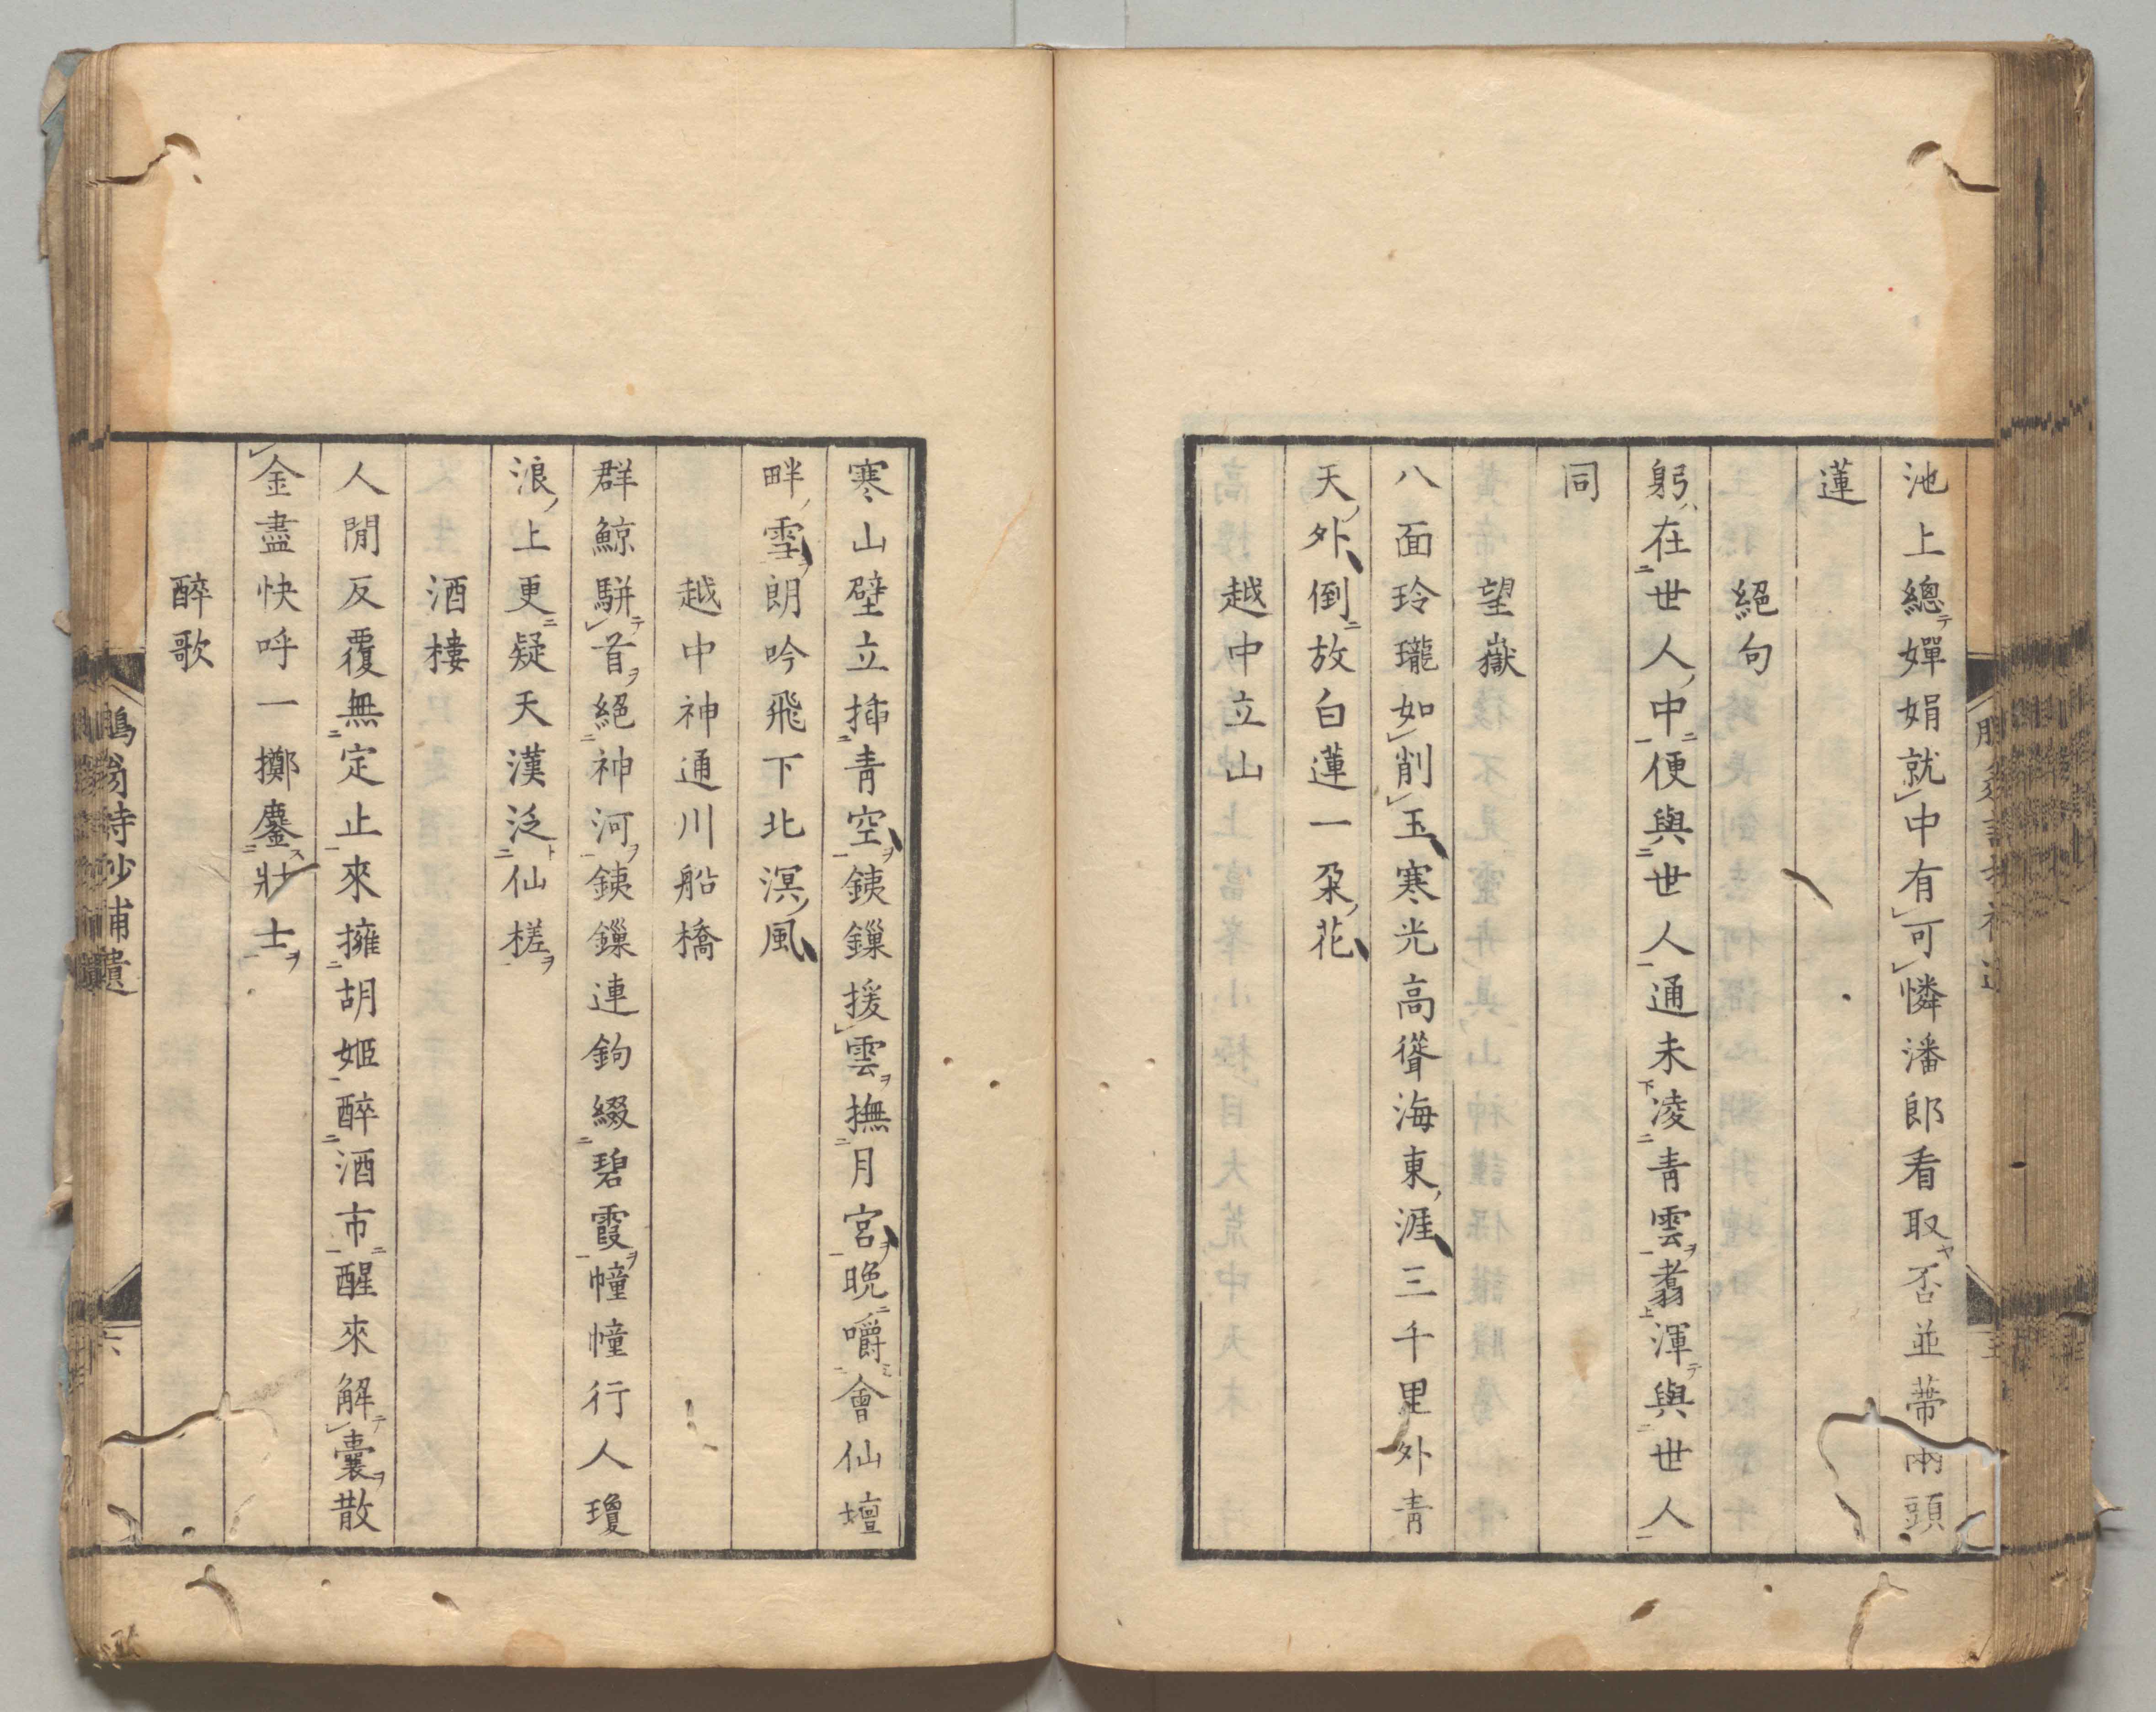 池上總嬋娟就中有可憐潘郎看取否並蒂兩頭
蓮
絕句
躬在世人中便與世人通未凌青雲翥渾與世人
同
望嶽
八面玲瓏如削玉寒光高聳海東涯三千里外青
天外倒放白蓮一朶花
越中立山
寒山壁立揷青空銕鏁援雲撫月宮晚嚼會仙壇
畔雪朗吟飛下北溟風
越中神通川船橋
群鯨駢首絕神河銕鏁連鉤綴碧霞幢幢行人瓊
浪上更疑天漢泛仙槎
酒樓
人閒反覆無定止來擁胡姬醉酒市醒來解囊散
金盡快呼一擲鏖壯士
醉歌
鵬翁詩抄補遺
六